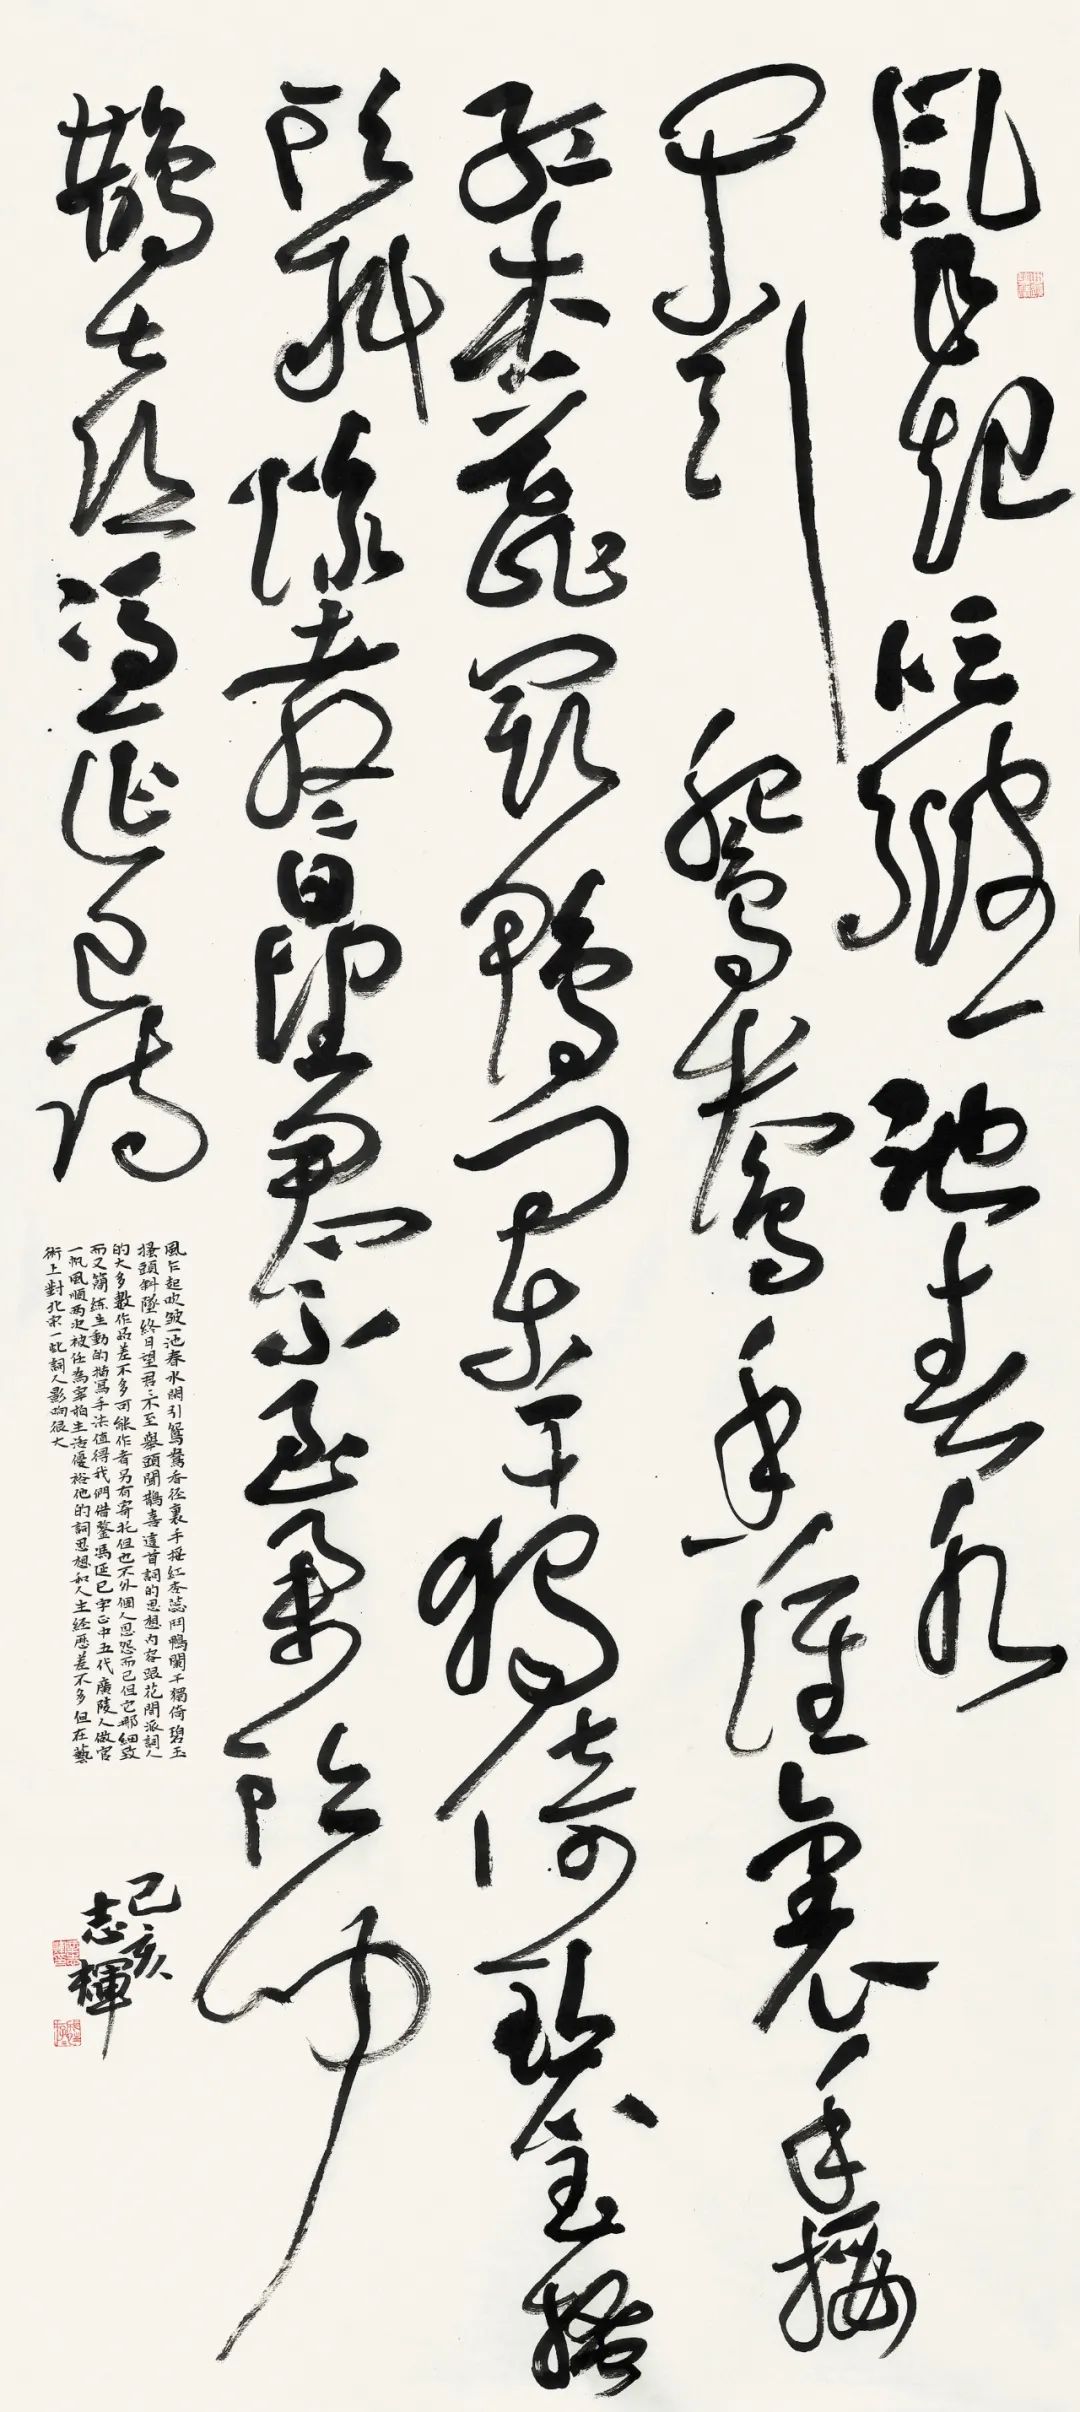 風乍起吹皺一池春水
閑引鴛鴦香徑裏手挼
紅杏蕊鬥鴨闌干獨倚碧玉搔
頭斜墜終日望君不至舉頭聞
鵲喜馮延巳詞
風乍起吹皺一池春水閑引鴛鴦香徑裏手挼紅杏蕊鬥鴨闌干獨倚碧玉
搔頭斜墜終日望君君不至舉頭聞鵲喜這首詞的思想內容跟花間派詞人
的大多數作品差不多可能作者另有寄托但也不外個人恩怨而已但它那細致
而又簡練生動的描寫手法值得我們借鑒馮延巳字正中五代廣陵人做官
一帆風順兩次被任為宰相生活優裕他的詞思想和人生經歷差不多但在藝
術上對北宋一些詞人影響很大
己亥
志輝